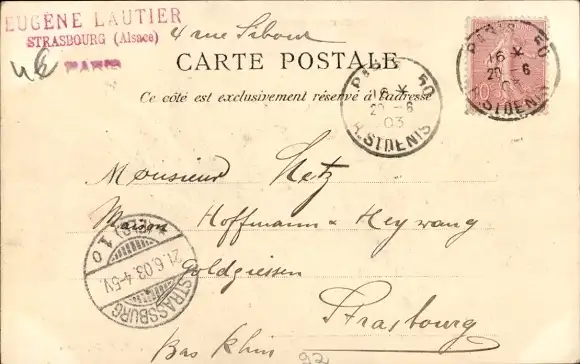 EUGÈNE LAUTIER
STRASBOURG (Alsace)
PARIS
4 rue Sibour
CARTE POSTALE
Ce côté est exclusivement réservé à l'adresse
PARIS 50
16 *
20 -6
03
R. ST DENIS
PARIS * 50
16 *
20 -6
03
R. ST DENIS
10
Monsieur Metz
Maison Hoffmann & Heywang
Goldgiessen
Strasbourg
Bas Rhin
STRASSBURG
21.6.03. 4-5V.
* (ELS.) 1 o
92